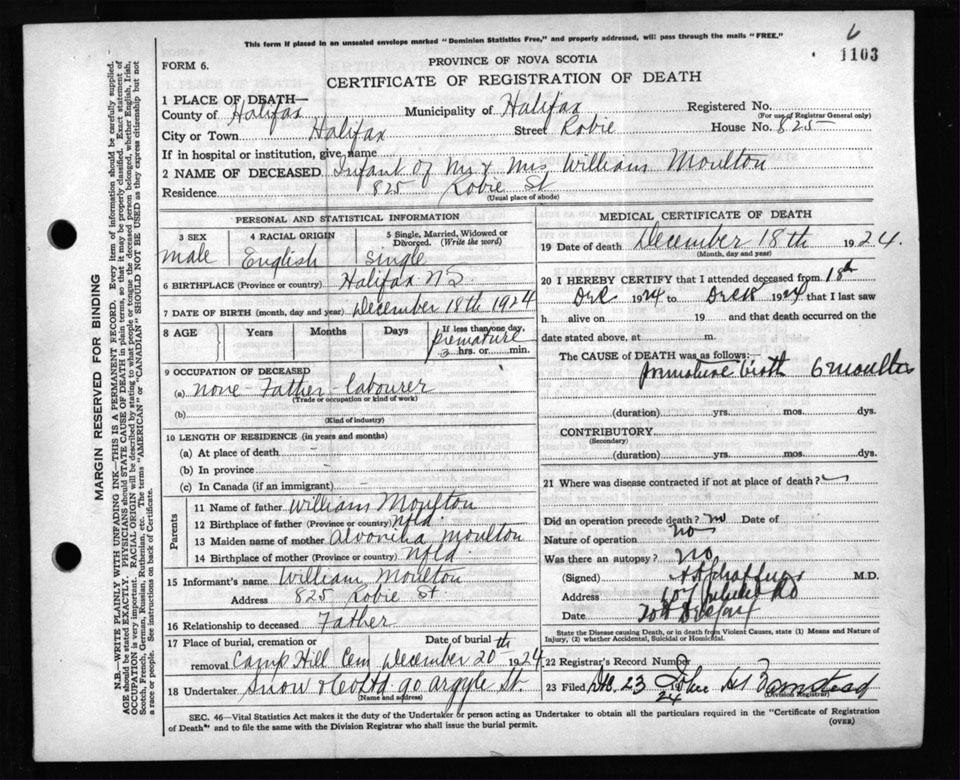 6
1103
This form if placed in an unsealed envelope marked "Dominion Statistics Free," and properly addressed, will pass through the mails "FREE."
FORM 6.
PROVINCE OF NOVA SCOTIA
CERTIFICATE OF REGISTRATION OF DEATH
1 PLACE OF DEATH—
County of Halifax Municipality of Halifax Registered No.
(For use of Registrar General only)
City or Town Halifax Street Robie House No. 825
If in hospital or institution, give name
2 NAME OF DECEASED Infant of Mr & Mrs William Moulton
Residence 825 Robie St
(Usual place of abode)
PERSONAL AND STATISTICAL INFORMATION
3 SEX 4 RACIAL ORIGIN 5 Single, Married, Widowed or Divorced. (Write the word)
male English Single
6 BIRTHPLACE (Province or country) Halifax NS
7 DATE OF BIRTH (month, day and year) December 18th 1924
8 AGE Years Months Days If less than one day,
premature
3 hrs. or min.
9 OCCUPATION OF DECEASED
(a) none - Father - labourer
(Trade or occupation or kind of work)
(b)
(Kind of industry)
10 LENGTH OF RESIDENCE (in years and months)
(a) At place of death
(b) In province
(c) In Canada (if an immigrant)
Parents
11 Name of father William Moulton
12 Birthplace of father (Province or country) Nfld.
13 Maiden name of mother Moulton
14 Birthplace of mother (Province or country) Nfld
15 Informant's name William Moulton
Address 825 Robie St
16 Relationship to deceased Father
17 Place of burial, cremation or removal Date of burial
Camp Hill Cem December 20th 1924
18 Undertaker Snow & Co Ltd 90 Argyle St.
(Name and address)
MEDICAL CERTIFICATE OF DEATH
19 Date of death December 18th 1924.
(Month, day and year)
20 I HEREBY CERTIFY that I attended deceased from 18th
Dec 1924 to Dec 18 1924 that I last saw
h alive on 19 and that death occurred on the
date stated above, at m.
The CAUSE OF DEATH was as follows:
premature birth 6 months
(duration) yrs. mos. dys.
CONTRIBUTORY
(Secondary)
(duration) yrs. mos. dys.
21 Where was disease contracted if not at place of death?
Did an operation precede death? no Date of
Nature of operation no
Was there an autopsy? no
(Signed) M.D.
Address
Date
State the Disease causing Death, or in death from Violent Causes, state (1) Means and Nature of
Injury, (2) whether Accidental, Suicidal or Homicidal.
22 Registrar's Record Number
23 Filed Dec. 23 24 John
(Division Registrar)
SEC. 46—Vital Statistics Act makes it the duty of the Undertaker or person acting as Undertaker to obtain all the particulars required in the "Certificate of Registration
of Death" and to file the same with the Division Registrar who shall issue the burial permit.
(OVER)
MARGIN RESERVED FOR BINDING
N.B.—WRITE PLAINLY WITH UNFADING INK—THIS IS A PERMANENT RECORD. Every item of information should be carefully supplied.
AGE should be stated EXACTLY. PHYSICIANS should STATE CAUSE OF DEATH in plain terms, so that it may be properly classified. Exact statement of
OCCUPATION is very important. RACIAL ORIGIN will be described by stating to what people or tongue the deceased person belonged, whether English, Irish,
Scotch, French, German, Russian, Ruthenian, etc. The terms "AMERICAN" or "CANADIAN" SHOULD NOT BE USED as they express citizenship but not
a race or people. See instructions on back of Certificate.